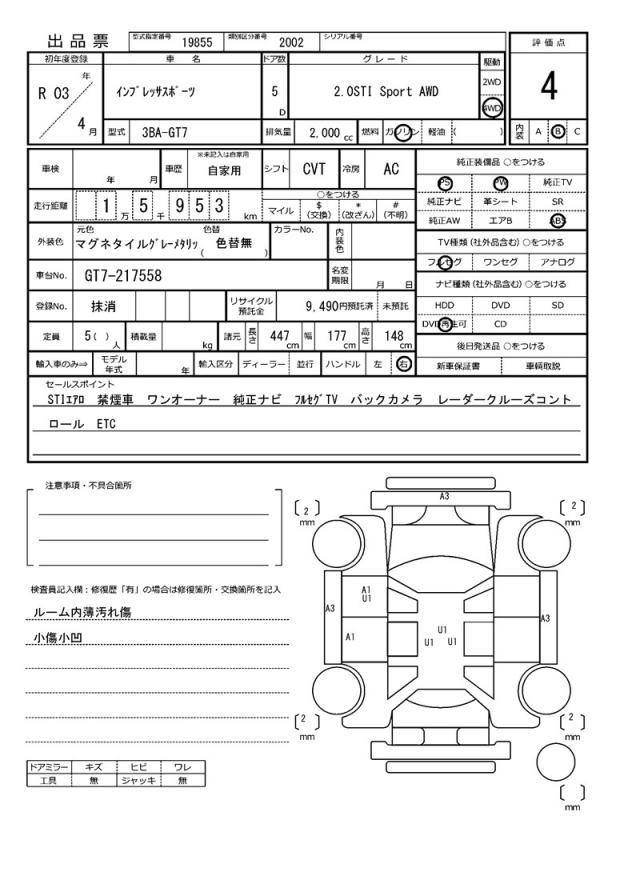 出品票
型式指定番号 19855 類別区分番号 2002 シリアル番号
評価点
初年度登録 車名 ドア数 グレード 駆動
R 03 年 4 月
インプレッサスポーツ 5 D 2.0STI Sport AWD 2WD 4WD
4
型式 3BA-GT7 排気量 2,000 cc 燃料 ガソリン 軽油 ( )
内装 A B C
車検 年 月 車歴 ※未記入は自家用 自家用 シフト CVT 冷房 AC
純正装備品 ○をつける
PS PW 純正TV
走行距離 1 万 5 千 9 5 3 km
○をつける
マイル $ (交換) * (改ざん) # (不明)
純正ナビ 革シート SR
純正AW エアB ABS
外装色 元色 マグネタイルグレーメタリッ 色替 ( 色替無 ) カラーNo. 内装色
TV種類 (社外品含む) ○をつける
フルセグ ワンセグ アナログ
車台No. GT7-217558 名変期限 月 日
ナビ種類 (社外品含む) ○をつける
登録No. 抹消 リサイクル預託金 9,490円預託済 未預託
HDD DVD SD
DVD再生可 CD
定員 5( ) 人 積載量 kg 諸元 長さ 447 cm 幅 177 cm 高さ 148 cm
後日発送品 ○をつける
輸入車のみ⇒ モデル年式 年 輸入区分 ディーラー 並行 ハンドル 左 右
新車保証書 車輌取説
セールスポイント
STIエアロ 禁煙車 ワンオーナー 純正ナビ フルセグTV バックカメラ レーダークルーズコント
ロール ETC
注意事項・不具合箇所
検査員記入欄：修復歴「有」の場合は修復箇所・交換箇所を記入
ルーム内薄汚れ傷
小傷小凹
ドアミラー キズ ヒビ ワレ
工具 無 ジャッキ 無
A3
2 mm
2 mm
A1
U1
A3
A3
A1
U1
U1 U1
2 mm
2 mm
mm